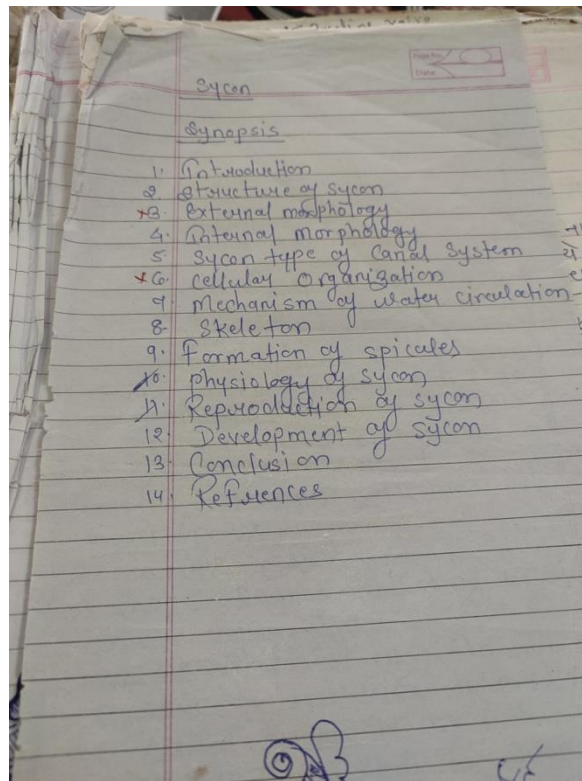 Page No.
Date
Sycon
Synopsis
1. Introduction
2 Structure of Sycon
*3. External morphology
4. Internal morphology
5 Sycon type of Canal System
*6. Cellular Organization
7. Mechanism of water circulation
8. Skeleton
9. Formation of spicules
10. Physiology of Sycon
11. Reproduction of sycon
12. Development of sycon
13. Conclusion
14. Refrences